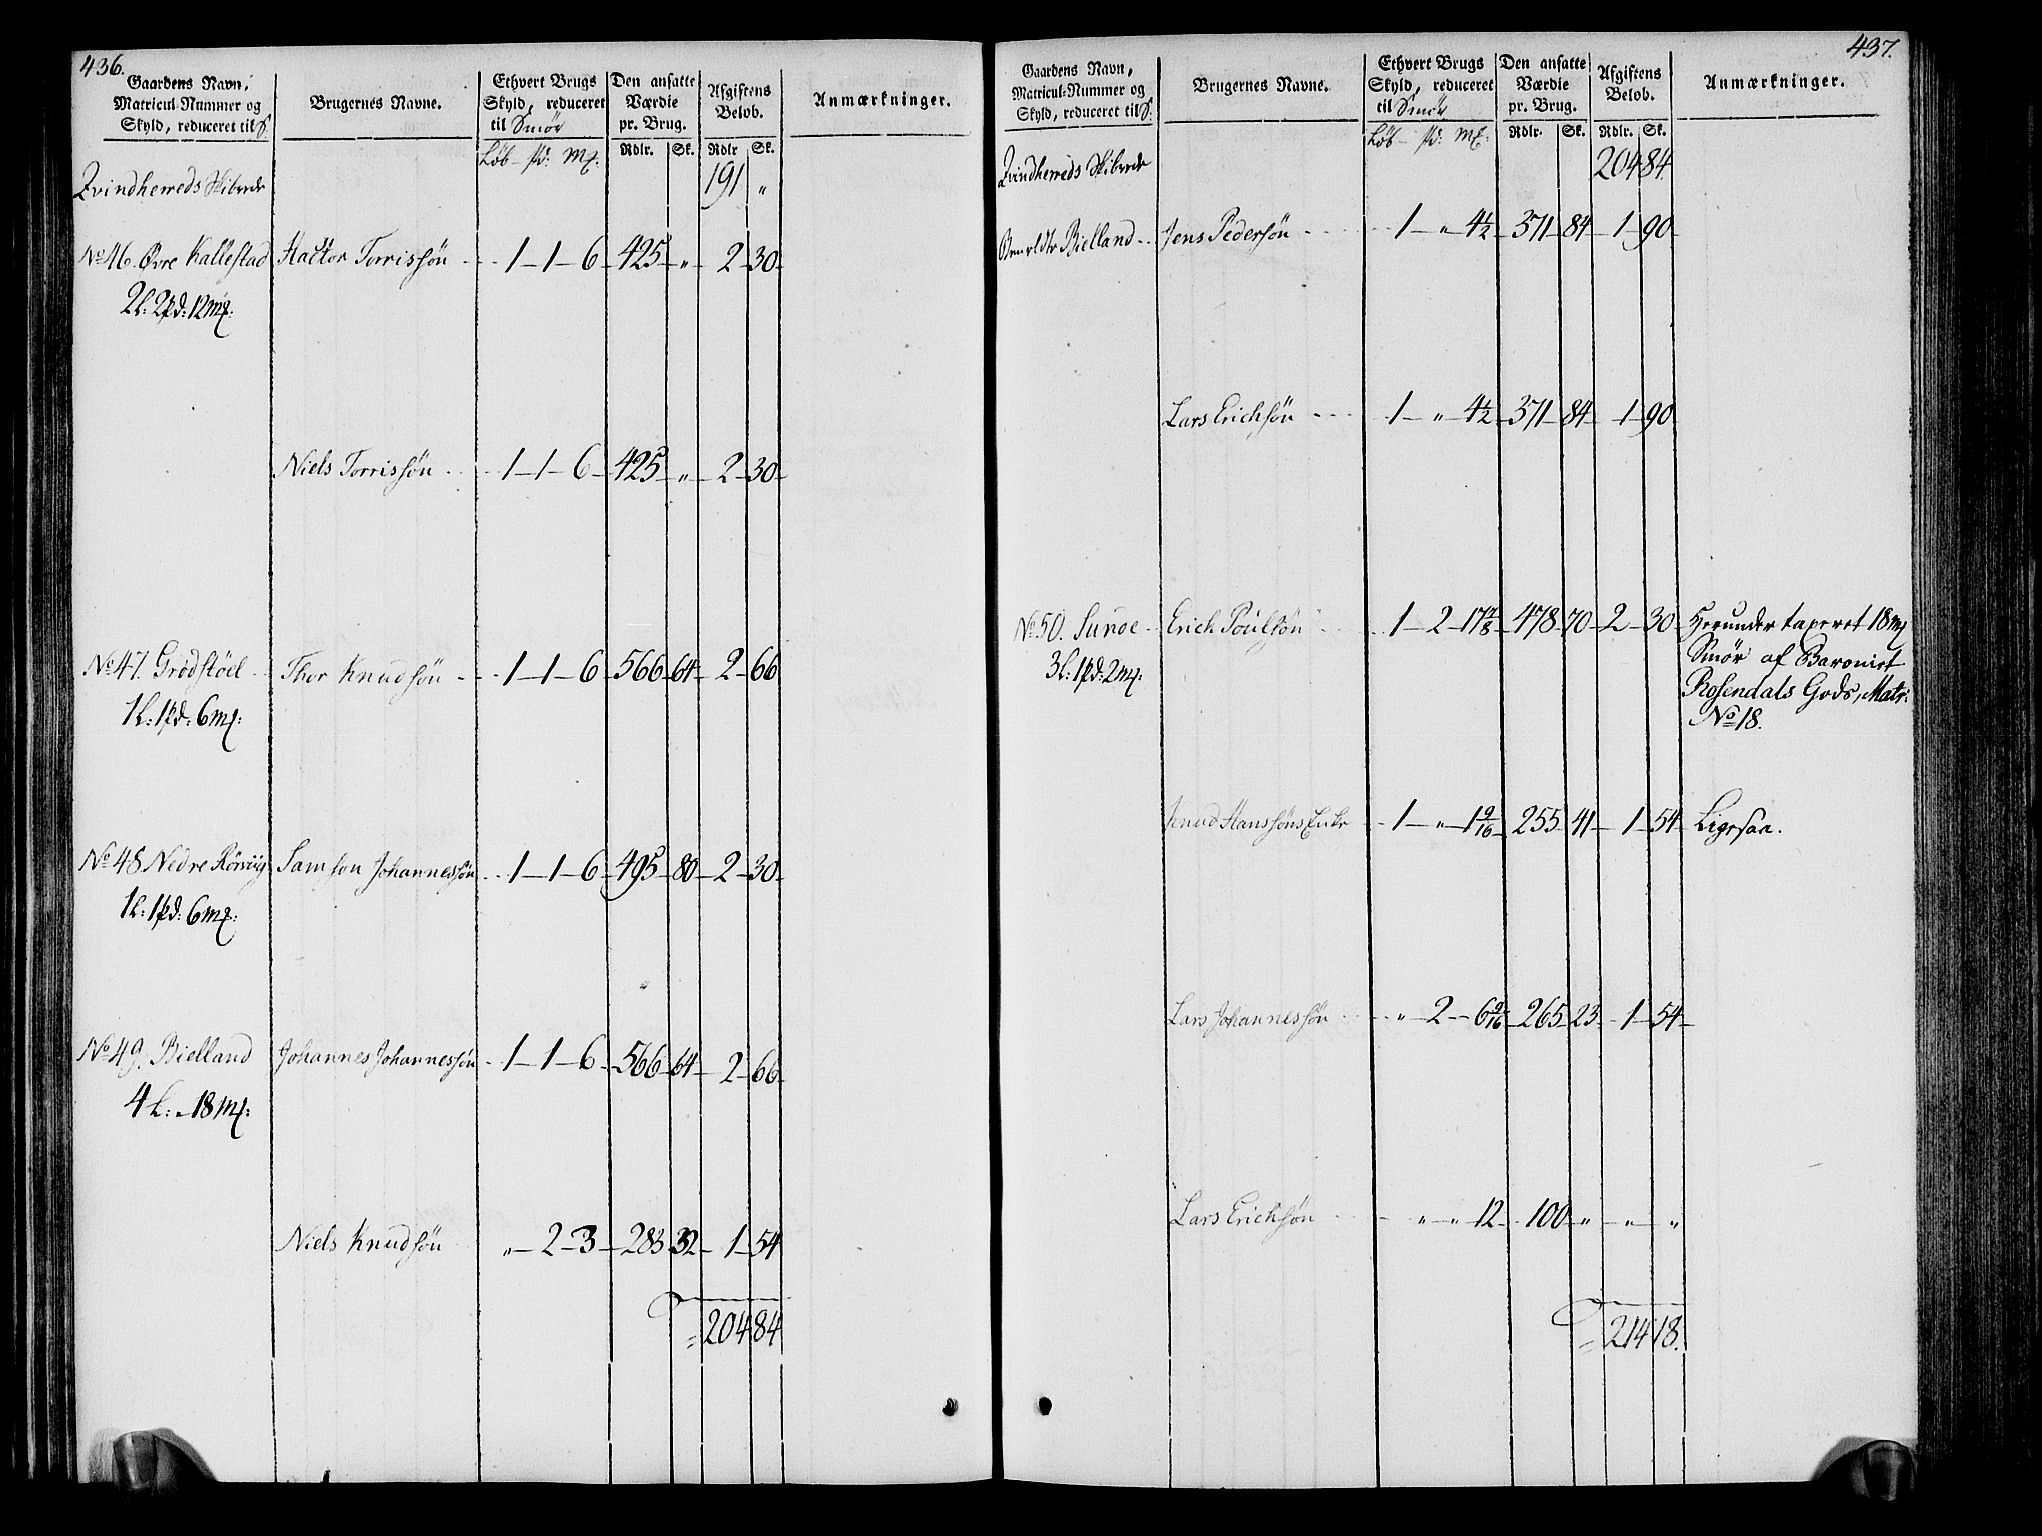 436.
Gaardens Navn, Matricul-Nummer og Skyld, reduceret til S:
Brugernes Navne.
Ethvert Brugs Skyld, reduceret til Smör
Den ansatte Værdie pr. Brug.
Afgiftens Belöb.
Anmærkninger.
Löb - pd: mk: Rdlr. Sk. Rdlr Sk.
Qvindherreds Skibrede 191 "
No 46. Øvre Kallestad Hactor Torrissön 1 - 1 - 6 425 " 2 - 30
2L: 2pd: 12mk:
Niels Torrissön 1 - 1 - 6 425 " 2 - 30
No 47. Grödstöel Thor Knudsön 1 - 1 - 6 566 64 2 - 66
1L: 1pd: 6mk:
No 48. Nedre Rörviig Samson Johannessön 1 - 1 - 6 495 80 2 - 30
1L: 1pd: 6mk:
No 49. Bielland Johannes Johannessön 1 - 1 - 6 566 64 2 - 66
4L: - 18mk:
Niels Knudsön " - 2 - 3 283 32 1 - 54
204 84
437.
Gaardens Navn, Matricul-Nummer og Skyld, reduceret til S:
Brugernes Navne.
Ethvert Brugs Skyld, reduceret til Smör
Den ansatte Værdie pr. Brug.
Afgiftens Belöb.
Anmærkninger.
Löb - pd: mk: Rdlr. Sk. Rdlr. Sk.
Qvindherreds Skibrede 204 84
Bielland Jens Pedersön 1 - " 4½ 371 84 1 - 90
Lars Erichsön 1 - " 4½ 371 84 1 - 90
No 50. Sunde Erich Poulsön 1 - 2 - 17 7/8 478 70 2 - 30 Herunder taxeret 18mk
3L: 1pd: 2mk: Smör af Baroniet
Rosendals Gods, Matr:
No 18.
Knud Hanssöns Enke 1 - " 1 9/16 255 41 1 - 54 Ligesaa.
Lars Johannessön " 2 - 6 9/16 265 23 1 - 54
Lars Erichsön " " 12 100 " " "
214 18.